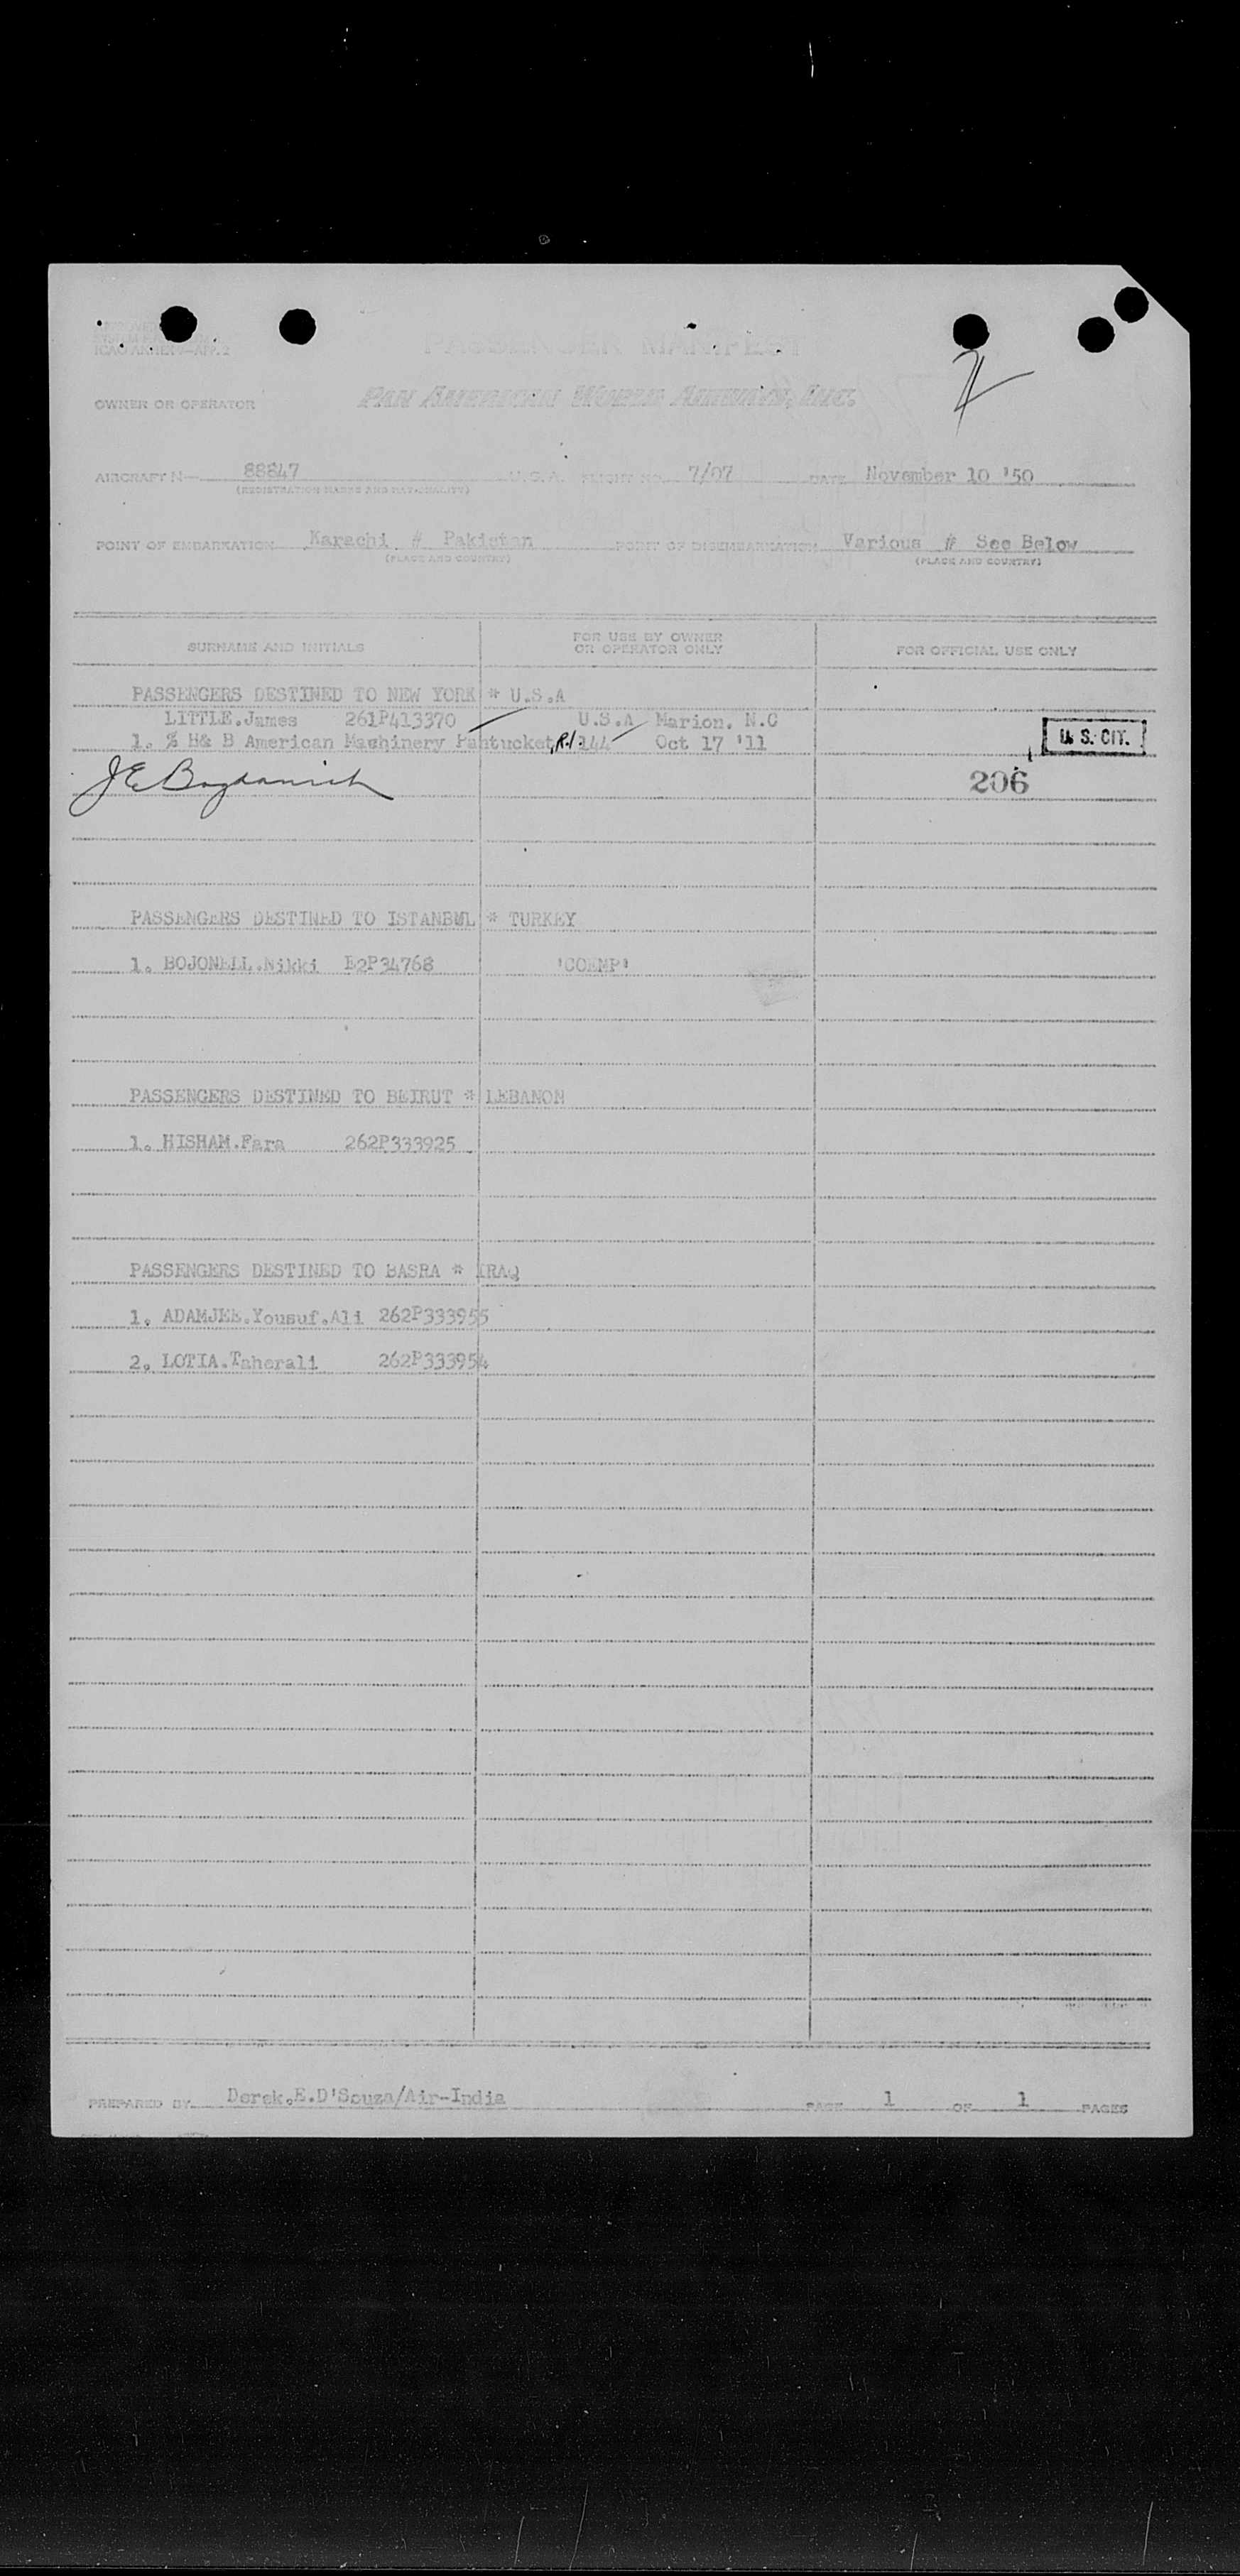 ICAO ANNEX 9—APP. 2
PASSENGER MANIFEST
OWNER OR OPERATOR PAN AMERICAN WORLD AIRWAYS, INC.
AIRCRAFT N— 88847 U.S.A. FLIGHT NO. 7/07 DATE November 10 '50
(REGISTRATION MARKS AND NATIONALITY)
POINT OF EMBARKATION Karachi # Pakistan POINT OF DISEMBARKATION Various # See Below
(PLACE AND COUNTRY) (PLACE AND COUNTRY)
SURNAME AND INITIALS FOR USE BY OWNER OR OPERATOR ONLY FOR OFFICIAL USE ONLY
PASSENGERS DESTINED TO NEW YORK * U.S.A
LITTLE.James 261P413370 U.S.A Marion. N.C
1. % H& B American Machinery Pahtucket, R.I 144 Oct 17 '11 U. S. CIT.
J E Bogdanich 206
PASSENGERS DESTINED TO ISTANBUL * TURKEY
1. BOJONELL.Nikki E2P34768 'COEMP'
PASSENGERS DESTINED TO BEIRUT * LEBANON
1. HISHAM.Fara 262P333925
PASSENGERS DESTINED TO BASRA * IRAQ
1. ADAMJEE.Yousuf.Ali 262P333955
2. LOTIA.Taherali 262P333954
PREPARED BY Derek.E.D'Souza/Air-India PAGE 1 OF 1 PAGES